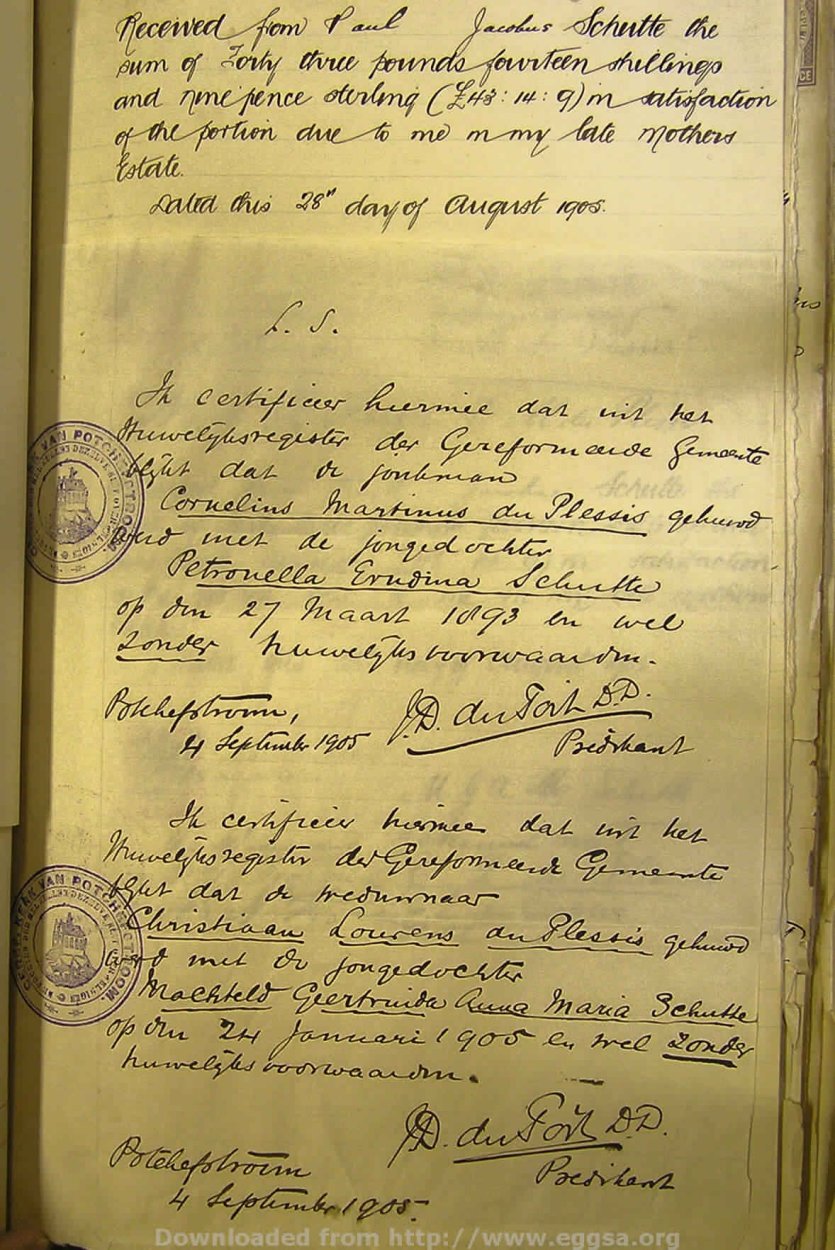 Received from Paul Jacobus Schutte the
sum of Forty three pounds fourteen shillings
and nine pence sterling (£43:14:9) in satisfaction
of the portion due to me in my late Mothers
Estate.
Dated this 28th day of August 1905.
L. S.
Ik certificeer hiermee dat uit het
Huwelijksregister der Gereformeerde Gemeente
blijkt dat de jonkman
Cornelius Martinus du Plessis gehuwd
werd met de jongedochter
Petronella Erudina Schutte
op den 27 Maart 1893 en wel
zonder huwelijksvoorwaarden.
Potchefstroom,
4 September 1905
J.D. du Toit D.D.
Predikant
Ik certificeer hiermee dat uit het
Huwelijksregister der Gereformeerde Gemeente
blijkt dat de weduwnaar
Christiaan Lourens du Plessis gehuwd
werd met de jongedochter
Machteld Geertruida Anna Maria Schutte
op den 24 Januari 1905 en wel zonder
huwelijksvoorwaarden.
J.D. du Toit D.D.
Predikant
Potchefstroom
4 September 1905.
VAN POTCHEFSTROOM
KERK VAN POTCHEFSTROOM
Downloaded from http://www.eggsa.org